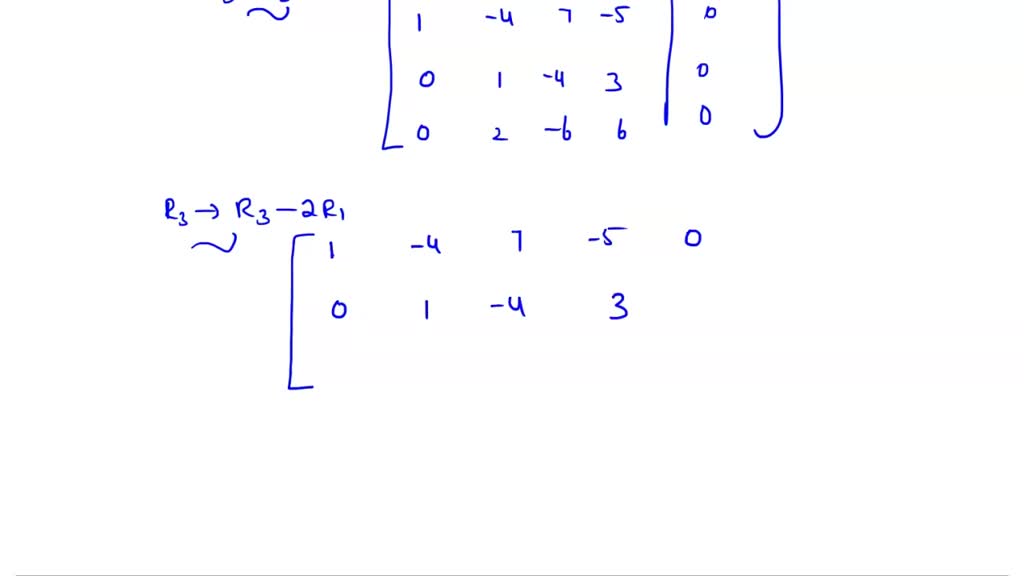 1 -4 7 -5 0
0 1 -4 3 0
0 2 -6 6 0
R3 → R3 - 2R1
~
1 -4 7 -5 0
0 1 -4 3